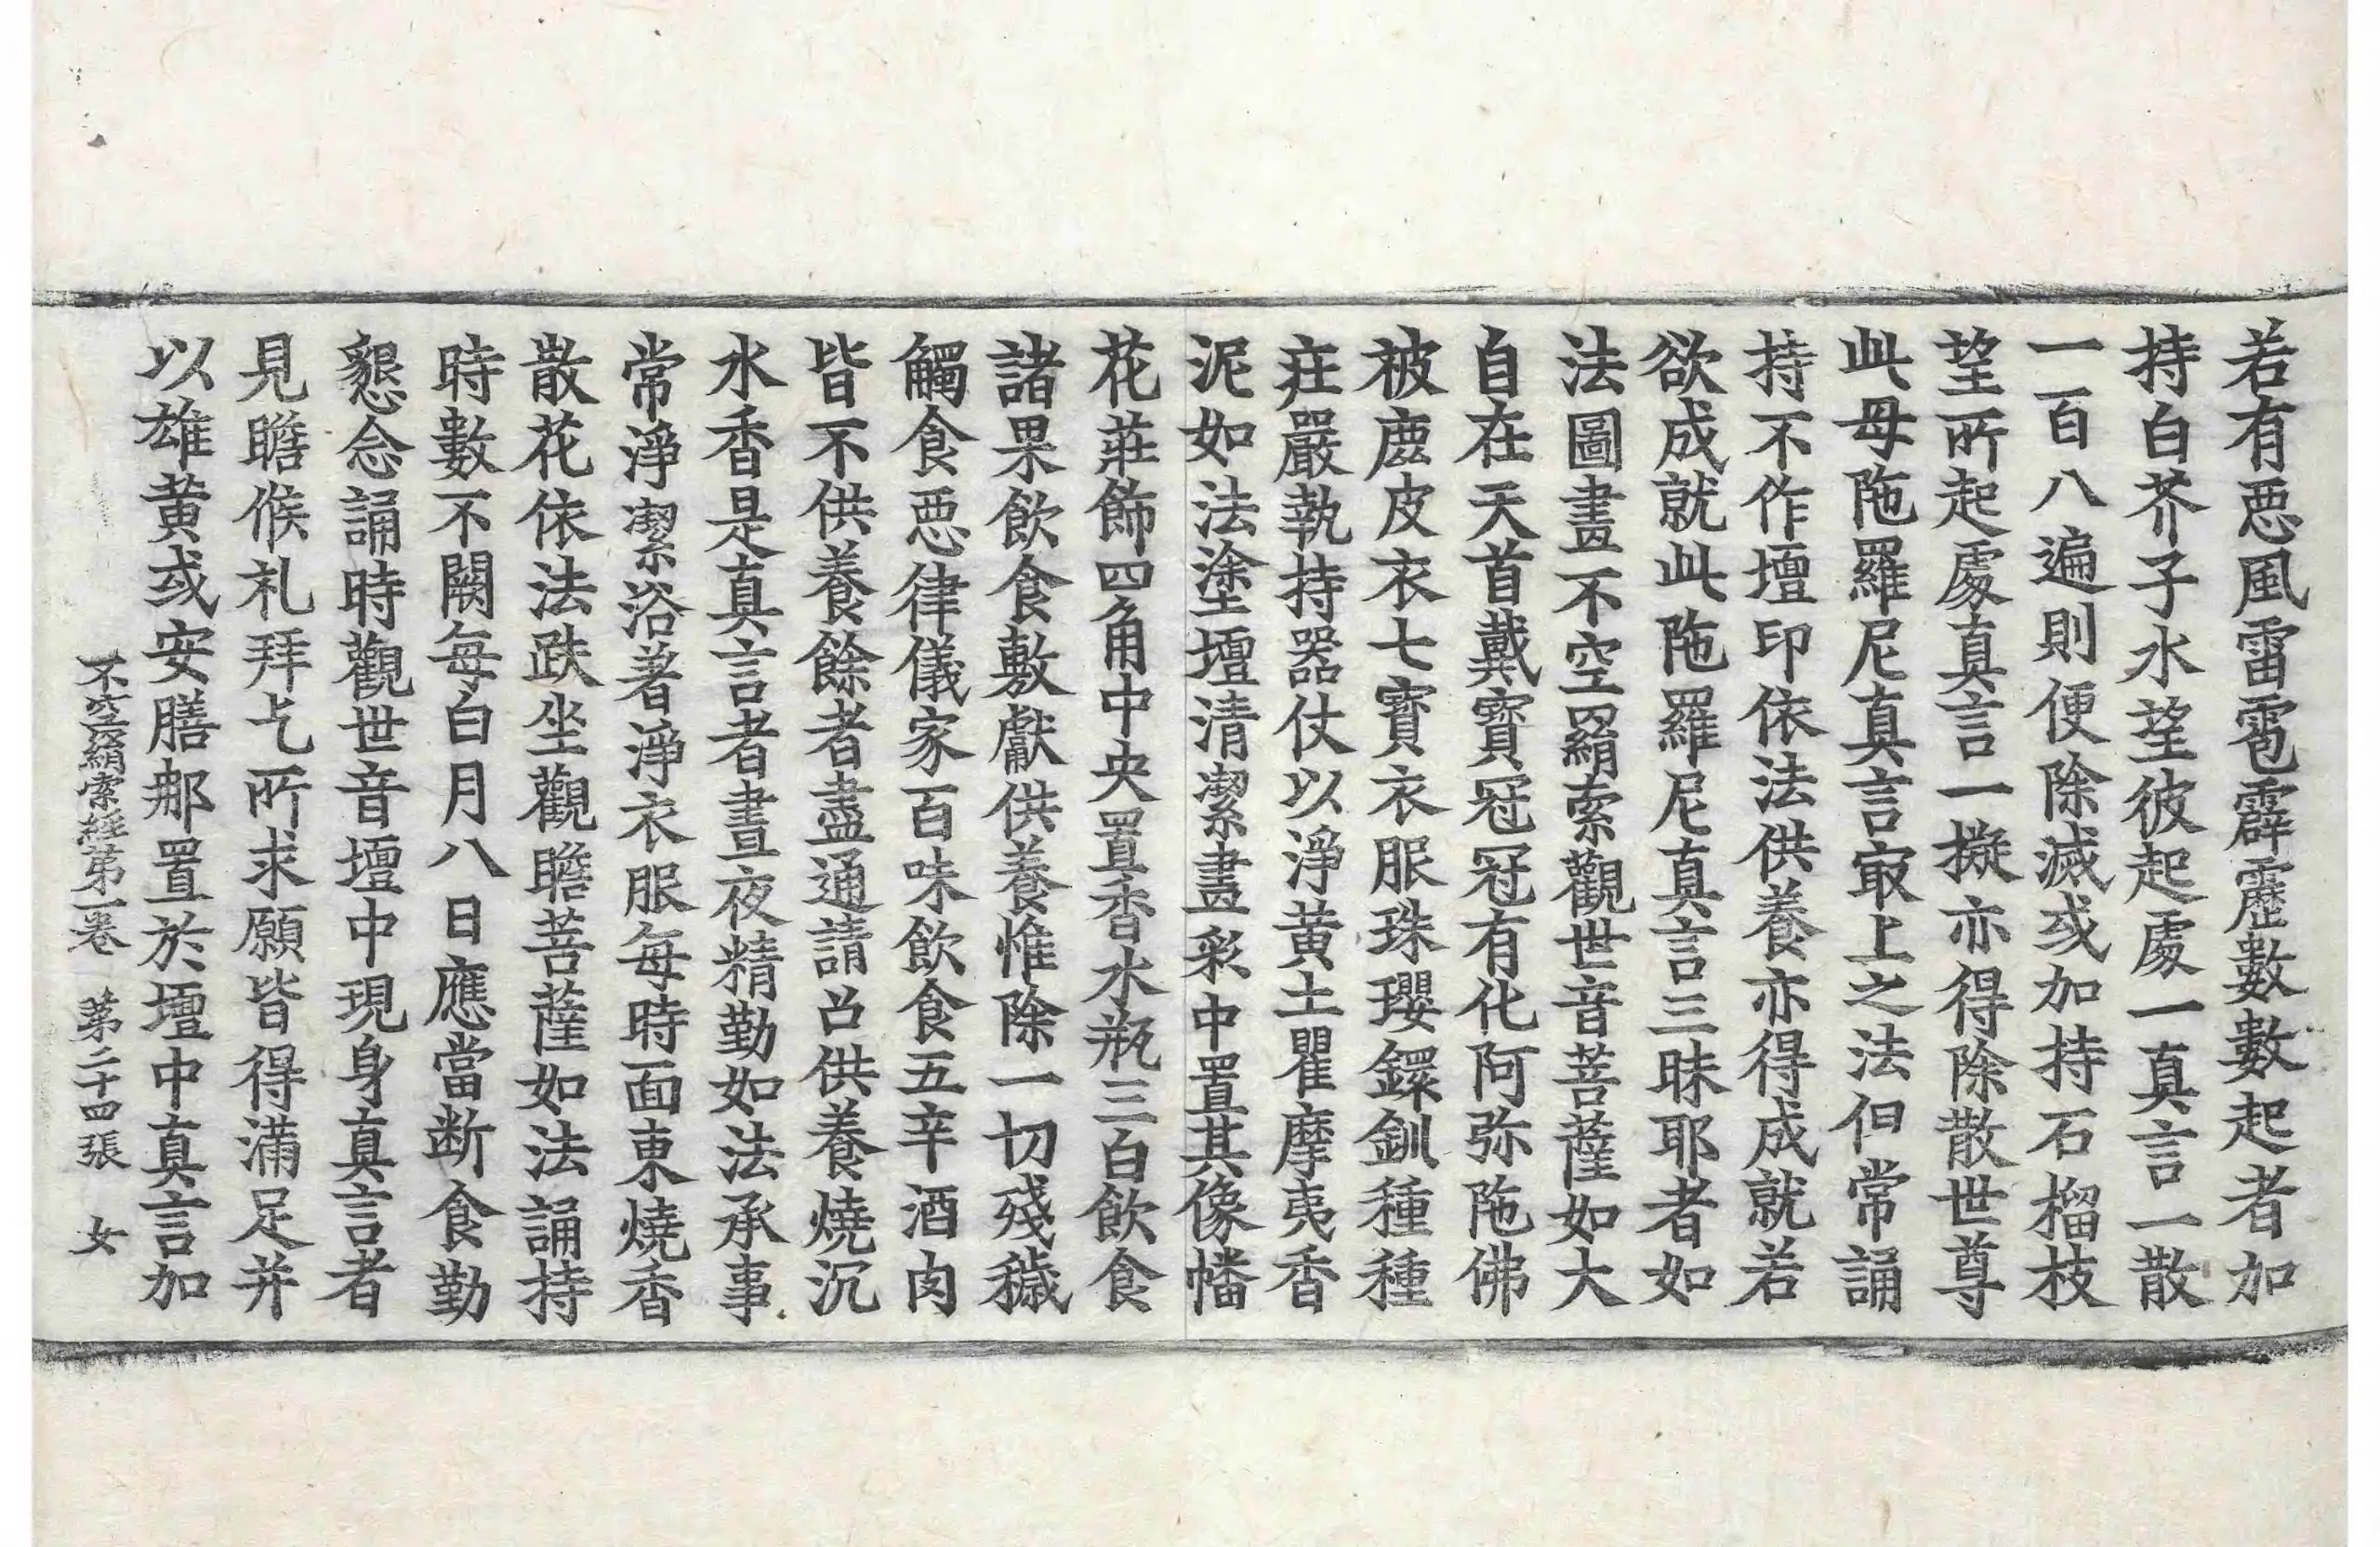 若有惡風雷雹霹靂數數起者加
持白芥子水望彼起處一真言一散
一百八遍則便除滅或加持石榴枝
望所起處真言一擬亦得除散世尊
此母陁羅尼真言㝡上之法但常誦
持不作壇印依法供養亦得成就若
欲成就此陁羅尼真言三昧耶者如
法圖畫不空羂索觀世音菩薩如大
自在天首戴寶冠冠有化阿弥陁佛
被鹿皮衣七寶衣服珠瓔鐶釧種種
庄嚴執持器仗以淨黄土瞿摩夷香
泥如法塗壇清潔畫彩中置其像幡
花莊飾四角中央置香水瓶三白飲食
諸果飲食敷獻供養惟除一切殘穢
觸食惡律儀家百味飲食五辛酒肉
皆不供養餘者盡通請召供養燒沉
水香是真言者晝夜精勤如法承事
常淨潔浴著淨衣服每時面東燒香
散花依法趺坐觀瞻菩薩如法誦持
時數不闕每白月八日應當断食勤
懇念誦時觀世音壇中現身真言者
見瞻候礼拜乞所求願皆得滿足并
以雄黄或安膳那置於壇中真言加
不空羂索經第一卷 第二十四張 女